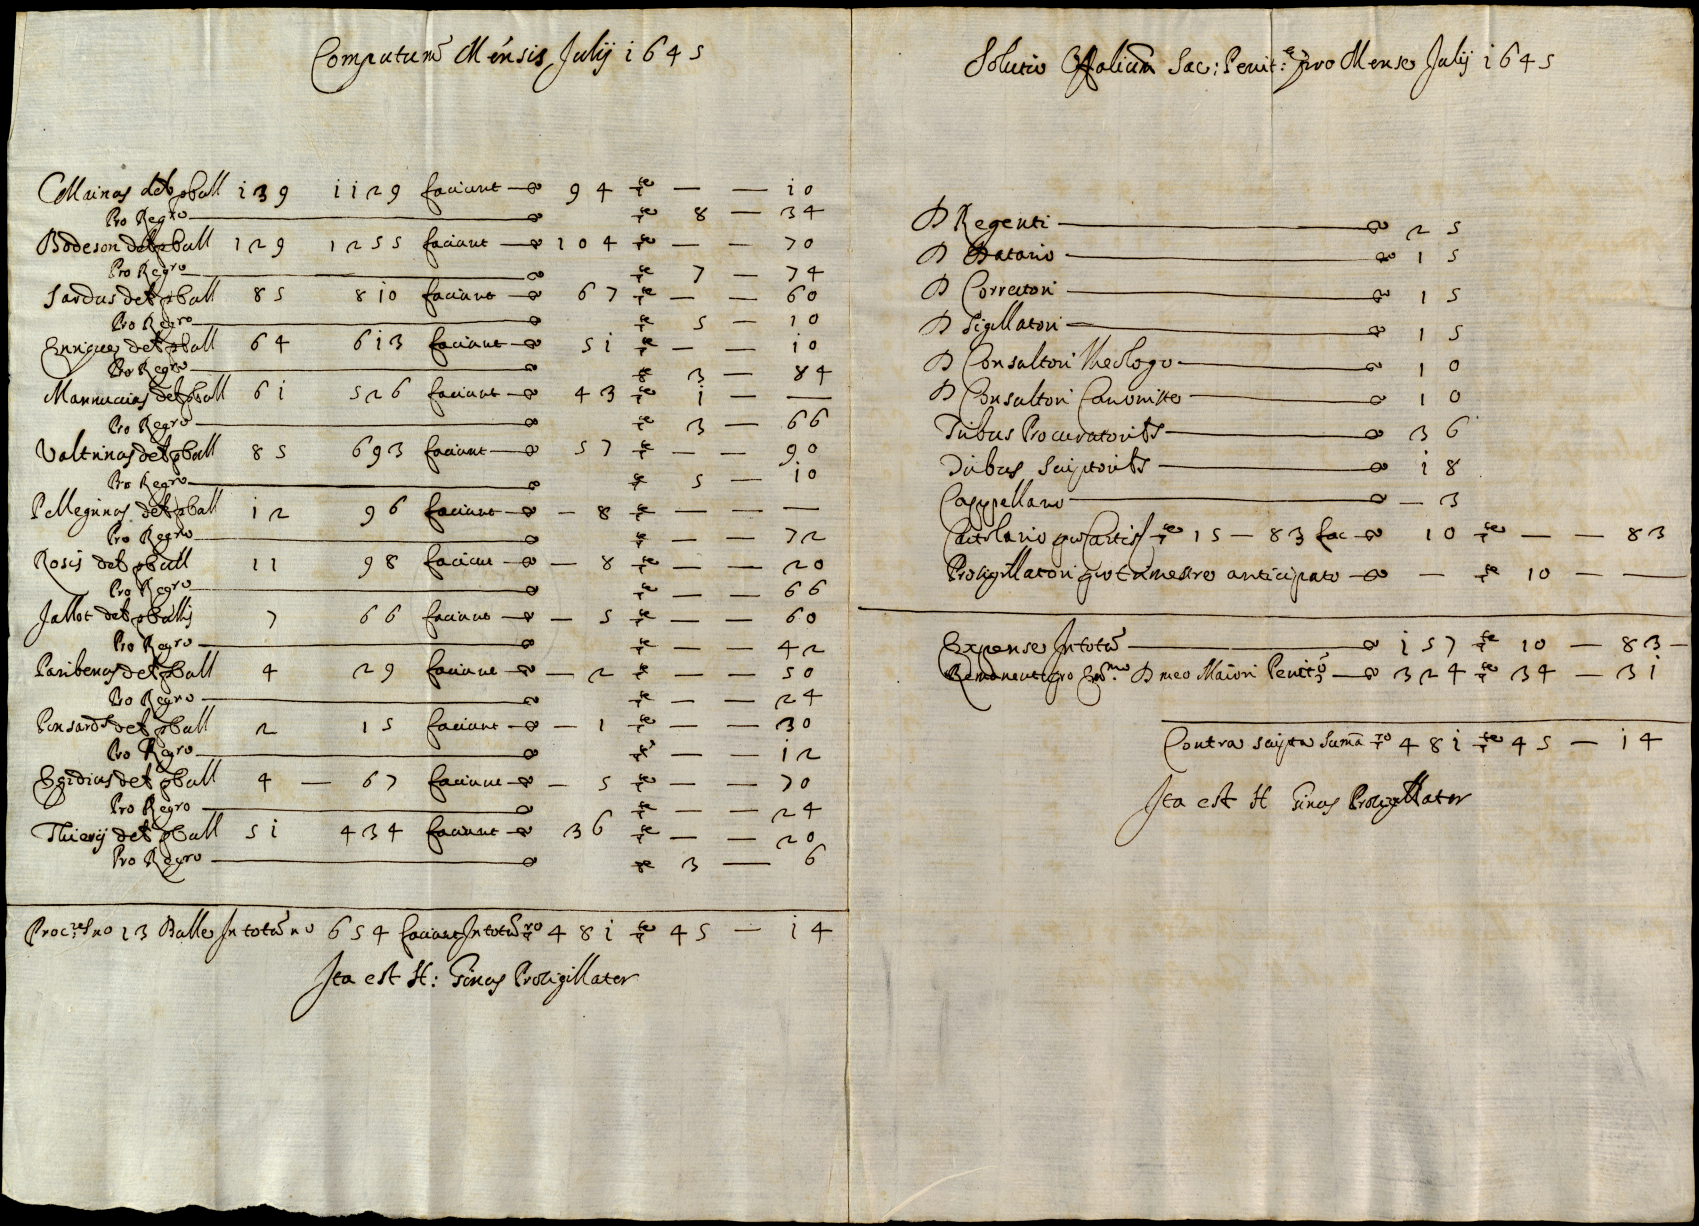 Computum Mensis Julij 1645
Mainas det pbull 139 1129 faciunt — 94 — — 10
Pro Regro — 8 — 34
Bodeson det pbull 129 1255 faciunt — 104 — — 70
Pro Regro — 7 — 74
Sardus det pbull 85 810 faciunt — 67 — — 60
Pro Regro — 5 — 10
Enriquez det pbull 64 613 faciunt — 51 — — 10
Pro Regro — 3 — 84
Mannucius det pbull 61 526 faciunt — 43 1 — —
Pro Regro — 3 — 66
Valtrinus det pbull 85 693 faciunt — 57 — — 90
Pro Regro — 5 — 10
Pellegrinus det pbull 12 96 faciunt — 8 — — —
Pro Regro — — — 72
Rosis det pbull 11 98 faciunt — 8 — — 20
Pro Regro — — — 66
Jallot det pbullis 7 66 faciunt — 5 — — 60
Pro Regro — — — 42
Paribenus det pbull 4 29 faciunt — 2 — — 50
Pro Regro — — — 24
Ponsard9 det pbull 2 15 faciunt — 1 — — 30
Pro Regro — — — 12
Egidius det pbull 4 — 67 faciunt — 5 — — 70
Pro Regro — — — 24
Thierij det pbull 51 434 faciunt — 36 — — 20
Pro Regro — 3 — 6
Proc.res no 13 Bulle In totũ no 654 faciunt In totũ 481 45 — 14
Ita est H: Ginas Prosigillator
Solutio Offalium Sac: Penit:æ pro Mense Julij 1645
D Regenti — 25
D Datario — 15
D Correctori — 15
D Sigillatori — 15
D Consultori Theologo — 10
D Consultori Canonisto — 10
Tribus Procuratoribs — 36
Duibus Scriptoribs — 18
Cappellano — 3
Cartolario pro Cartis 15 — 83 fac — 10 — — 83
Prosigillatori pro trimestre anticipato — — 10 — —
Expense In totũ — 157 10 — 83 —
Remanent pro Em.mo D meo Maiori Penitro — 324 34 — 31
Contra scripta Sumã 481 45 — 14
Ita est H Ginas Prosigillator